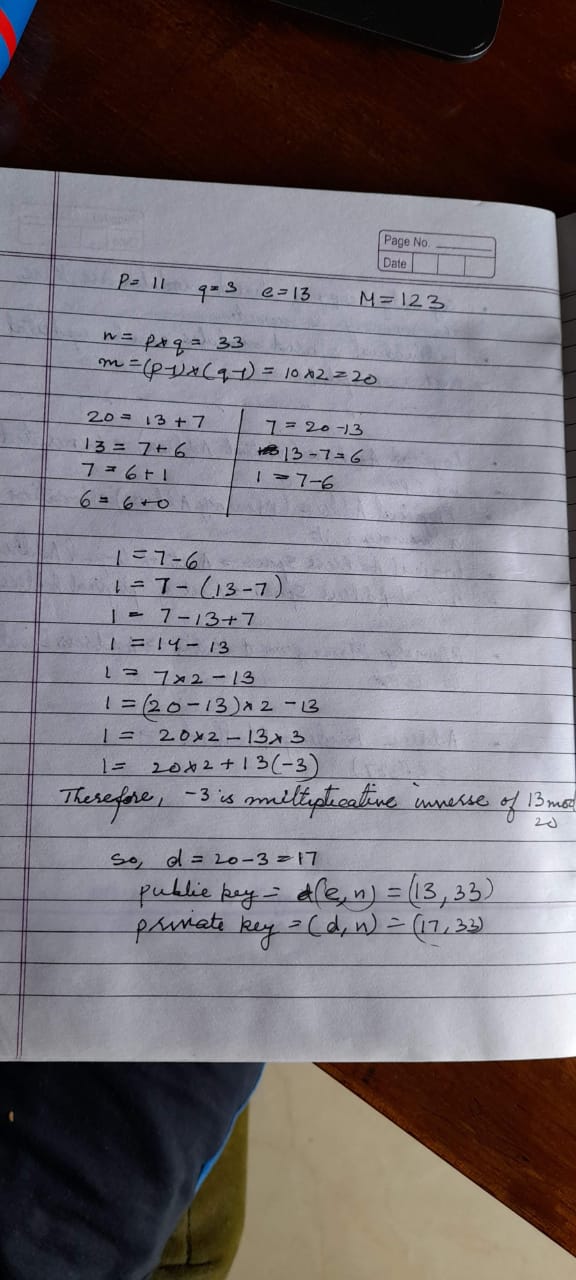 Page No.
Date
P= 11 q=3 e=13 M=123
n= p*q= 33
m=(p-1)×(q-1)= 10×2=20
20= 13+7 7=20-13
13= 7+6 13-7=6
7=6+1 1=7-6
6=6+0
1=7-6
1=7-(13-7)
1= 7-13+7
1=14-13
1= 7×2-13
1=(20-13)×2-13
1= 20×2-13×3
1= 20×2+13(-3)
Therefore, -3 is multiplicative inverse of 13 mod
20
So, d=20-3=17
public key= (e,n)=(13,33)
private key=(d,n)=(17,33)